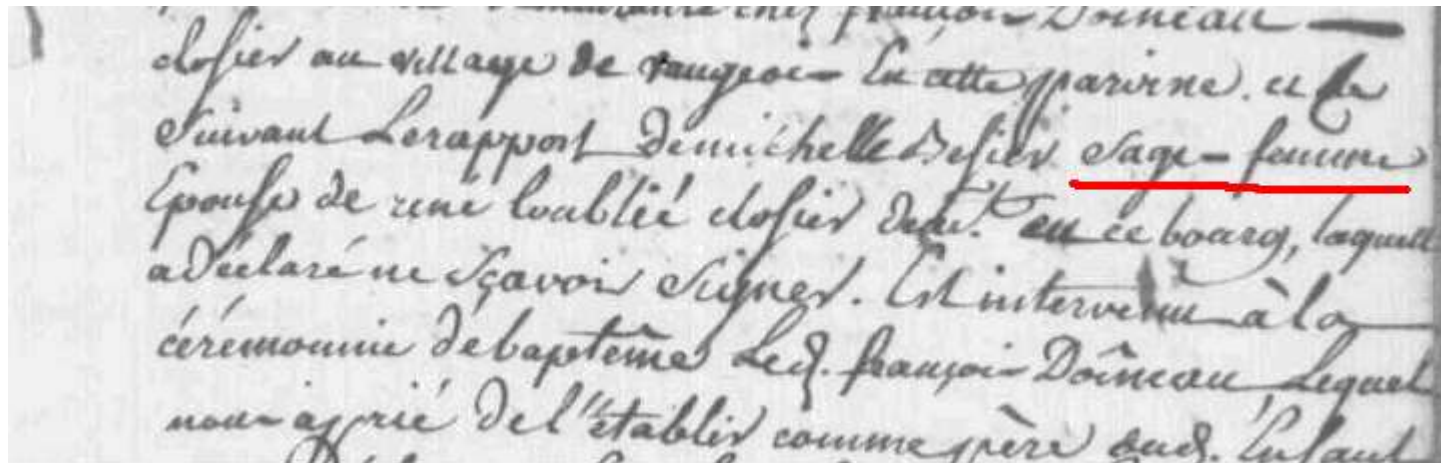 demeurante chez françois Doineau
closier au village de vaugeois En cette paroisse. et ce
suivant Le rapport de michelle Besier sage-femme
Epouse de rené loublié closier dem.t en ce bourg, laquelle
a déclaré ne sçavoir signer. Est intervenu à la
cérémonie de baptême Led. françois Doineau Lequel
nous a prié de l'établir comme père dud. Enfant